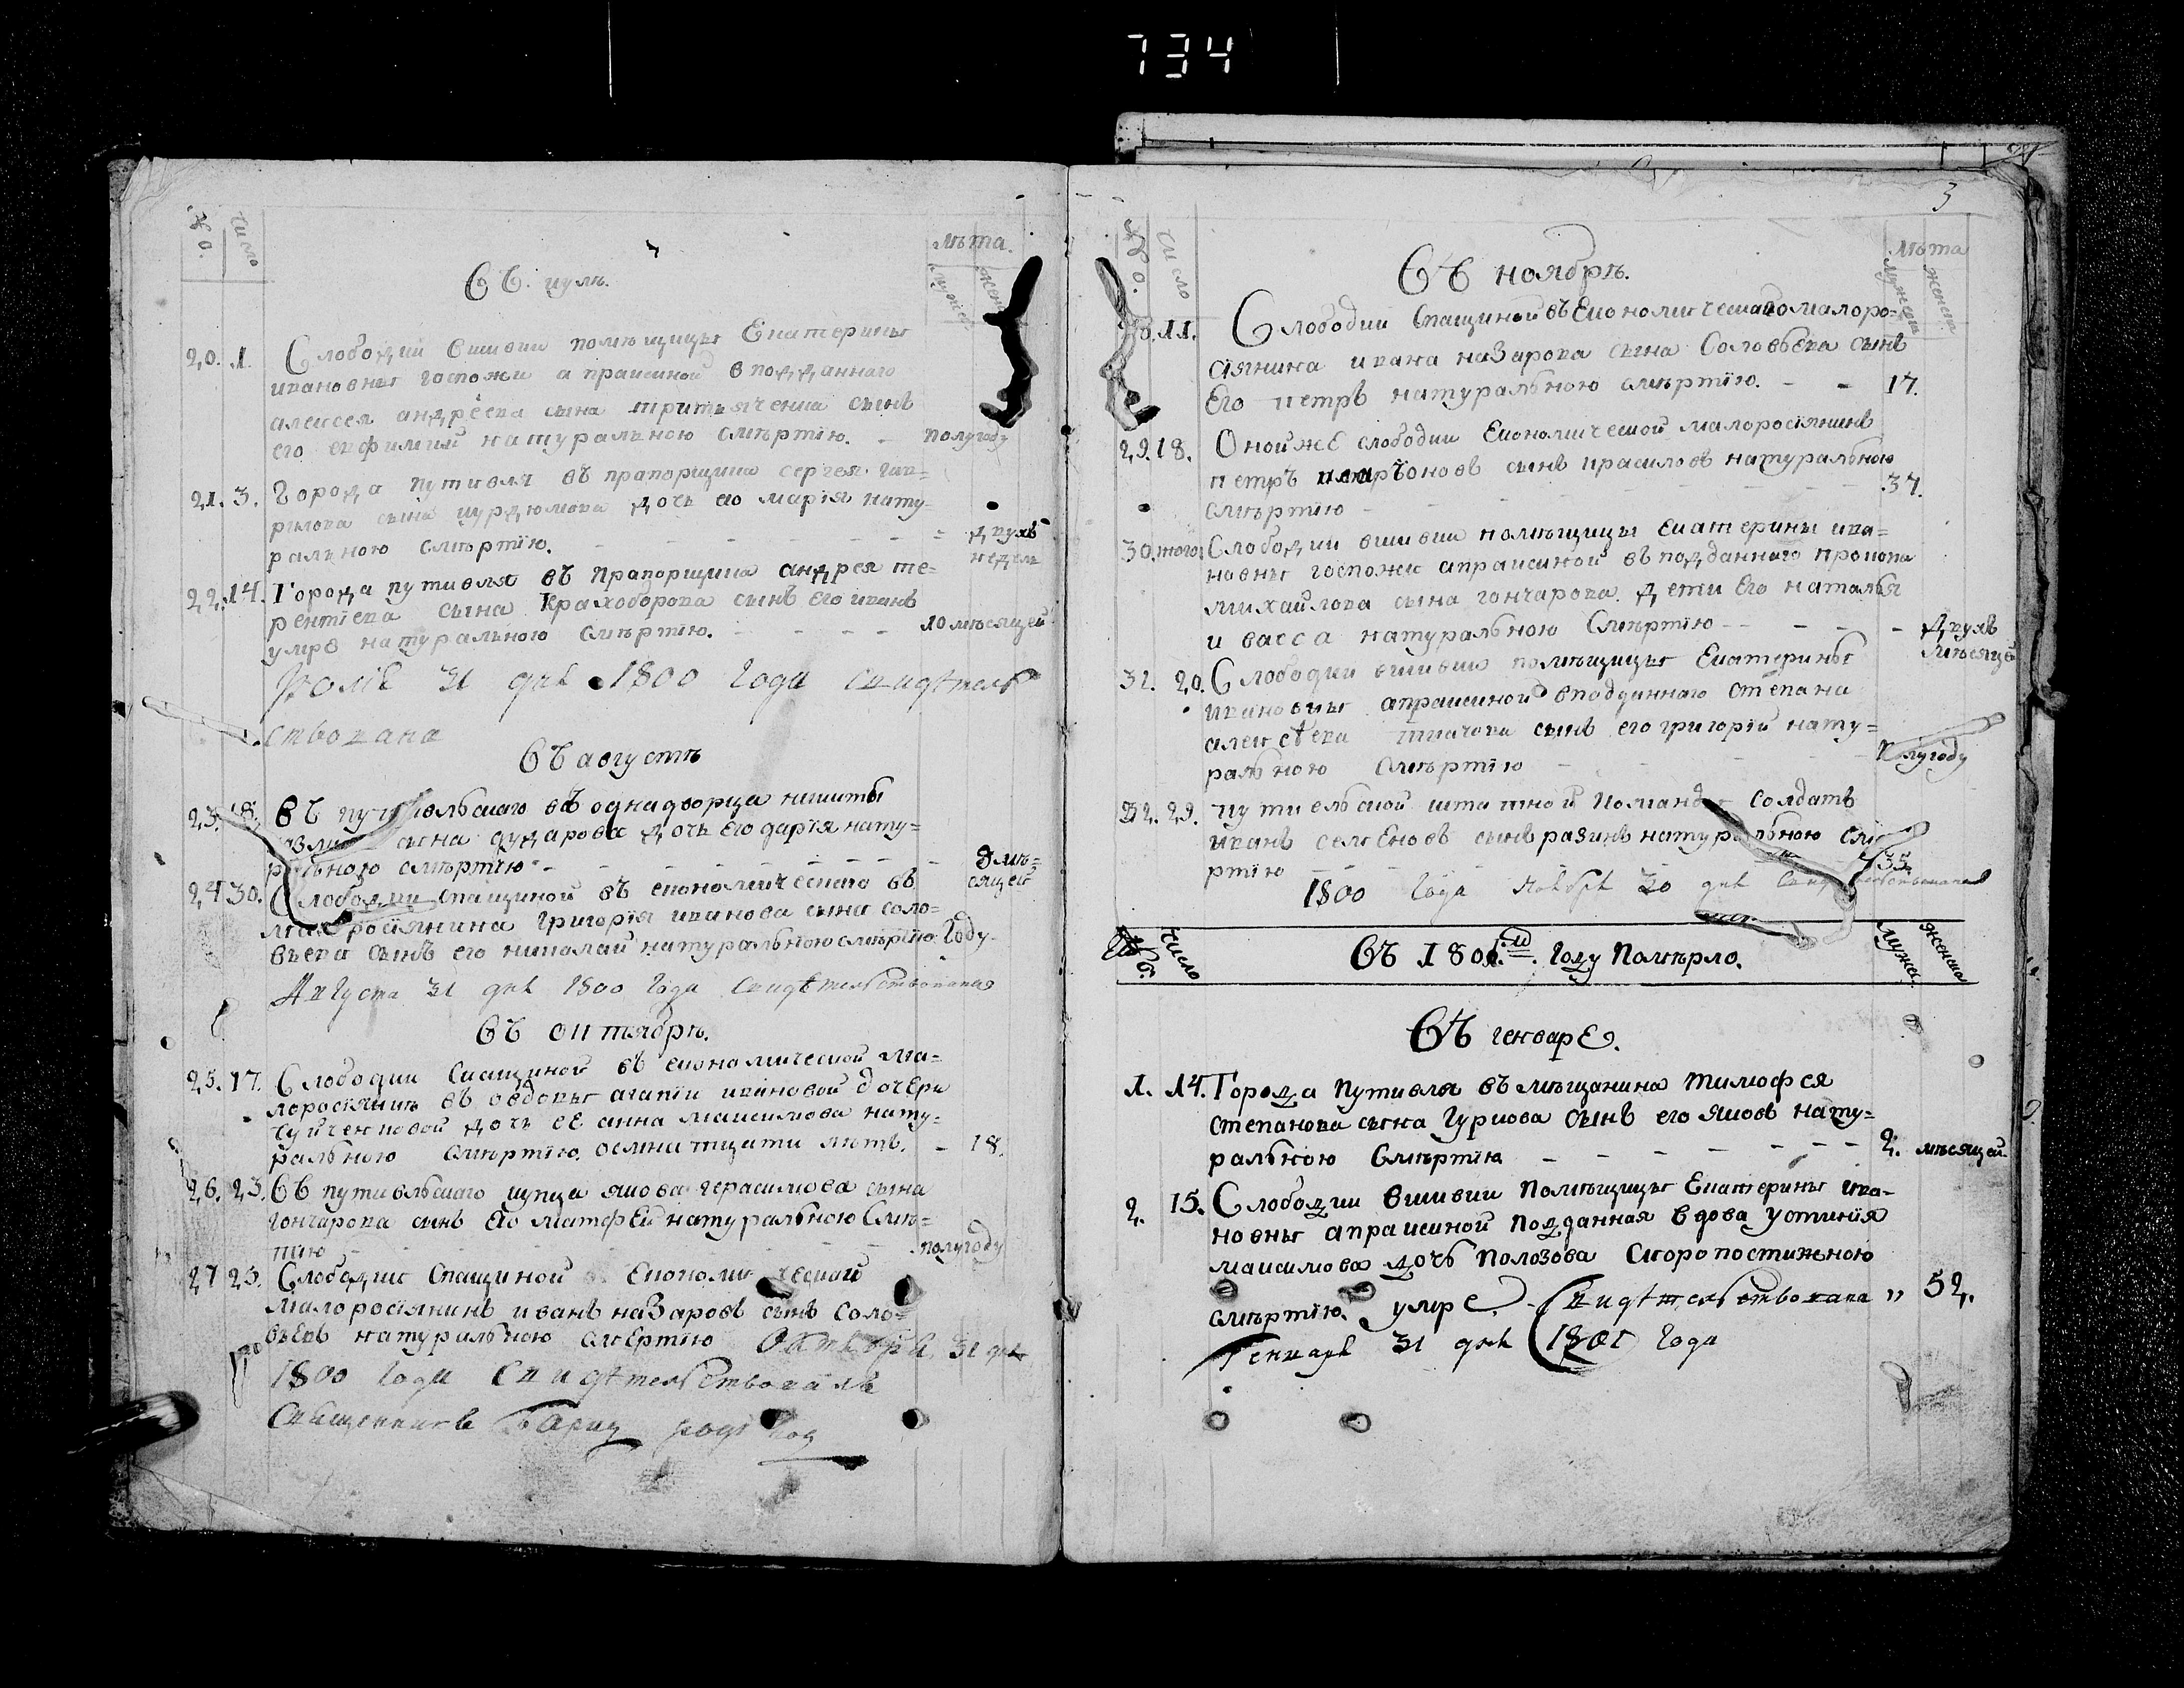 734
№.
число
лѣта.
мужеск
женск
Въ июлѣ.
20. 1. Слободки вшивки помѣщицы Екатерины
ивановны госпожи апраксиной в подданнаго
алексея андрѣева сына сынъ
его евфимий натуральною смѣртїю. - полугоду
21. 3. Города путивля въ прапорщика сергея гав=
рилова сына курдюмова дочь его марїя нату=
ральною смѣртїю. - двухъ недель
22. 14. Города путивля въ прапорщика андрея те=
рентїева сына Крахоборова сынъ его иванъ
умре натуральною смѣртїю. - 10 мѣсяцей
Июлїя 31 дня 1800 года свидѣтель
ствована
Въ августѣ
23. 18. въ путивльскаго въ однадворца никиты
сына дударова дочь его дарїя нату=
ральною смѣртїю - 8 мѣ=
сяцей
24. 30. Слободки спащиной въ економическаго въ
малоросїянина григорїя иванова сына соло=
вьева сынъ его николай натуральною смѣртїю. Году.
Августа 31 дня 1800 года свидѣтельствована
Въ октябрѣ.
25. 17. Слободки спащиной въ економической ма=
лоросїянки въ овдовы агапїи ивановой дочери
дочь ее анна максимова нату=
ральною смѣртїю. осмнатцати лѣтъ. - 18.
26. 23. Въ путивльскаго купца якова герасимова сына
гончарова сынъ его матфей натуральною смѣ=
тїю - полугоду
27 25. Слободки спащиной економической
малоросїянинъ иванъ назаровъ сынъ соло=
вьевъ натуральною смертїю Октября 31 дня
1800 года свидѣтельствовалъ
Священникъ
3
№.
число
Лѣта
мужеск
женск
Въ ноябрѣ.
11. Слободки спащиной въ Економическаго малоро=
сїянина ивана назарова сына Соловьева сынъ
Его петръ натуральною смѣртїю. - - 17.
29. 18. Оной же слободки Економической малоросїянинъ
петръ сынъ красиловъ натуральною
смѣртїю - 37.
30. того Слободки вшивки помѣщицы екатерины ива=
новны госпожи апраксиной въ подданнаго прокопа
михайлова сына гончарова. дети его наталья
и васса натуральною смѣртїю - двухъ
мѣсяцъ
31. 20. Слободки вшивки помѣщицы Екатерины
ивановны апраксиной в подданнаго степана
алексѣева ткачова сынъ его григорїй нату=
ральною смѣртїю - полугоду
32. 29. путивльской штатной команды солдатъ
иванъ семеновъ сынъ разинъ натуральною смѣ
ртїю - 35.
1800 года Ноября 30 дня свидѣтельствована
№.
Число
Въ 1801.м. году Помѣрло.
мужеск.
женска
Въ генваре.
1. 14. Города Путивля въ мѣщанина тимофея
степанова сына Гуркова сынъ его яковъ нату=
ральною смѣртїю - 2. мѣсяцей
2. 15. Слободки вшивки Помѣщицы Екатерины ива-
новны апраксиной подданная вдова устинїя
максимова дочь полозова скоропостижною
смѣртїю. умре. - Свидѣтельствована „ 52.
Генваря 31 дня 1801 года